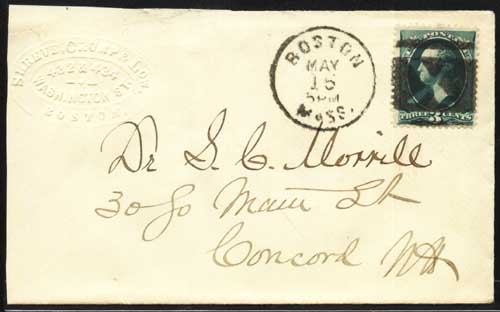 SHREVE, CRUMP & LOW.
432 & 434
WASHINGTON ST.
BOSTON.
BOSTON
MAY
15
5PM
MASS.
POSTAGE
THREE 3 CENTS
Dr S. C. Morrill
30 So Main St
Concord NH